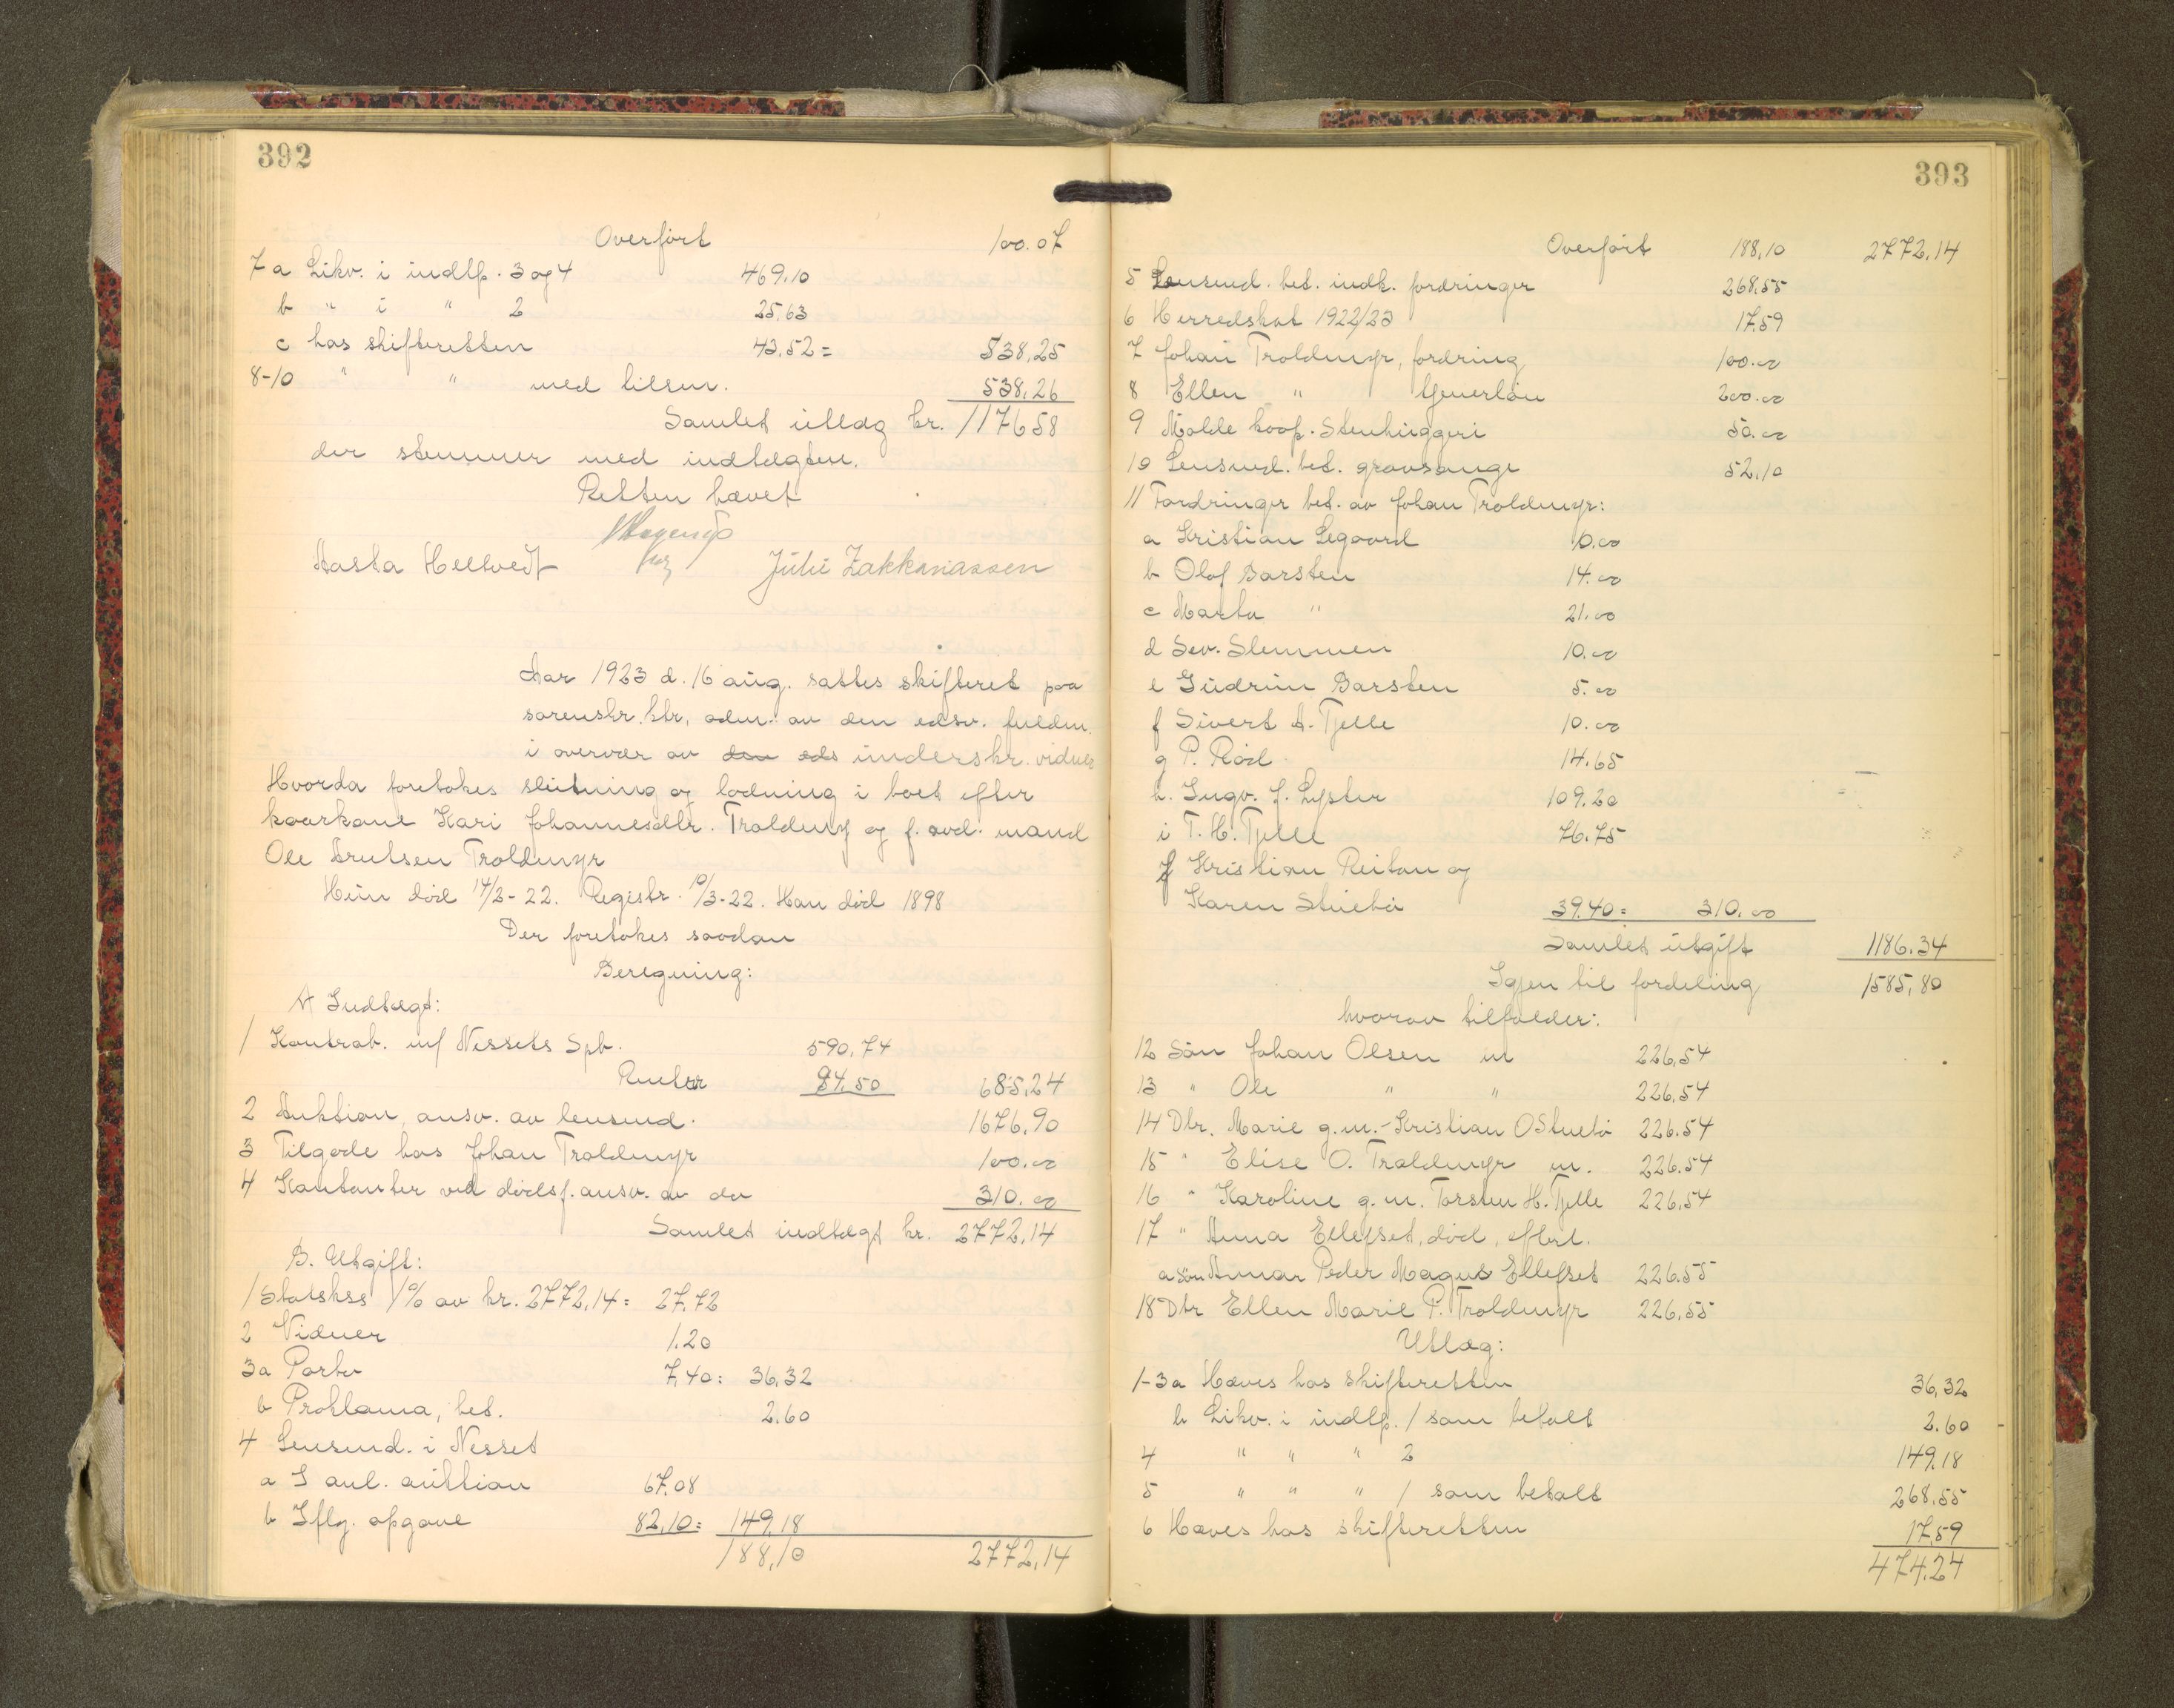 392
Overført 100.07
7 a Likv. i indtp. 3 og 4 469,10
b " i " 2 25,63
c hos skifteretten 43,52 = 538,25
8-10 " " med tilsm. 538,26
Samlet utlæg kr. 1176 58
der stemmer med indtægten.
Retten hævet
Aasta Heltvedt Julie Zakkariassen
Aar 1923 d. 16 aug. sattes skifteret paa
sorenskr.ktr, adm. av den edsv. fuldm.
i overvær av den eds underskr. vidner
Hvorda foretokes slutning og lodning i boet efter
kaarkone Kari Johannesdtr. Troldmyr og f. avd. mand
Ole Knutsen Troldmyr
Hun död 14/2-22. Registr. 10/3-22. Han död 1898
Der foretokes saadan
Beregning:
A Indtægt:
1 Kontrab. m/ Nessets Spb. 590,74
Renter 94,50 685,24
2 Auktion, ansv. av lensmd. 1676,90
3 Tilgode hos Johan Troldmyr 100.00
4 Kontanter ved dödsf. ansv. av do 310.00
Samlet indtægt kr. 2772,14
B. Utgift:
1 Statskss 1% av kr. 2772,14 = 27,72
2 Vidner 1.20
3a Porto 7,40 = 36,32
b Proklama, bet. 2.60
4 Lensmd. i Nesset
a I anl. auktion 67.08
b Iflg. opgave 82,10 = 149,18
188,10 2772,14
393
Overført 188,10 2772,14
5 Lensmd. bet. indk. fordringer 268,55
6 Herredskat 1922/23 17.59
7 Johan Troldmyr, fordring 100.00
8 Ellen " tjenerlön 200.00
9 Molde koop. Stenhuggeri 50.00
10 Lensmd. bet. gravsange 52,10
11 Fordringer bet. av Johan Troldmyr:
a Kristian Legaard 10.00
b Olaf Barsten 14.00
c Marta " 21.00
d Sev. Slemmen 10.00
e Gudrun Barsten 5.00
f Sivert A. Tjelle 10.00
g P. Röd 14.65
h. Ingv. J. Lyster 109.20
i T. H. Tjelle 76.75
j Kristian Reitan og
Karen Stuebö 39.40 = 310.00
Samlet utgift 1186.34
Igjen til fordeling 1585,80
hvorav tilfalder:
12 Sön Johan Olsen m 226,54
13 " Ole " " 226,54
14 Dtr. Marie g.m. Kristian O Stuebö 226.54
15 " Elise O. Troldmyr m. 226.54
16 " Karoline g.m. Torsten H. Tjelle 226,54
17 " Anna Ellefset, död, eftrl.
a sön Annar Peder Magnus Ellefset 226.55
18 Dtr Ellen Marie P. Troldmyr 226,55
Utlæg:
1-3a Hæves hos skifteretten 36,32
b Likv. i indtp. 1 som betalt 2.60
4 " " " 2 149,18
5 " " " 1 som betalt 268.55
6 Hæves hos skifteretten 17.59
474.24